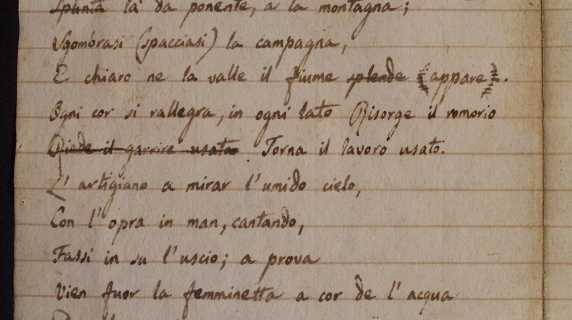 Spunta là da ponente, a la montagna;
Sgombrasi (spacciasi) la campagna,
E chiaro ne la valle il fiume splende (appare).
Ogni cor si rallegra, in ogni lato Risorge il romorio
Riede il garrire usato. Torna il lavoro usato.
L' artigiano a mirar l'umido cielo,
Con l'opra in man, cantando,
Fassi in su l'uscio; a prova
Vien fuor la femminetta a cor de l' acqua